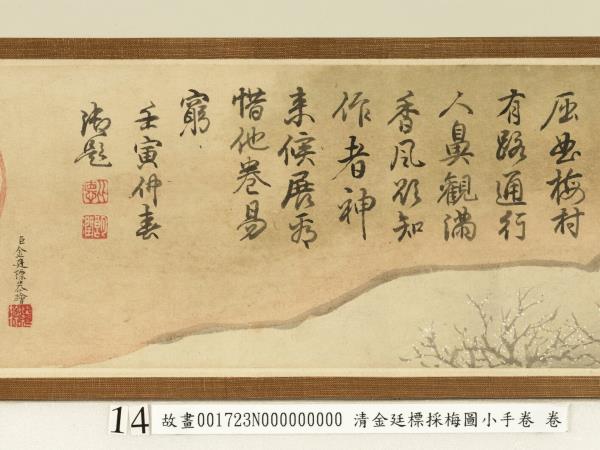 屈曲梅村
有路通行
人鼻觀滿
香風欲知
作者神
来候展看
惜他卷易
窮
壬寅仲春
御題
臣金廷標恭繪
14 故畫001723N000000000 清金廷標採梅圖小手卷 卷